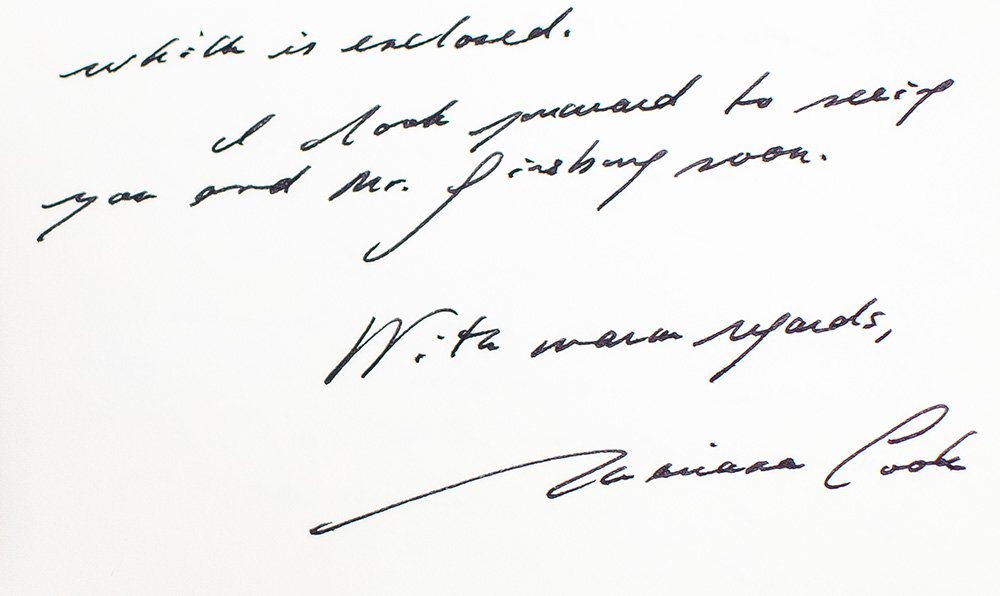 which is enclosed.
I look forward to seeing
you and Mr. Ginsburg soon.
With warm regards,
Mariana Cook